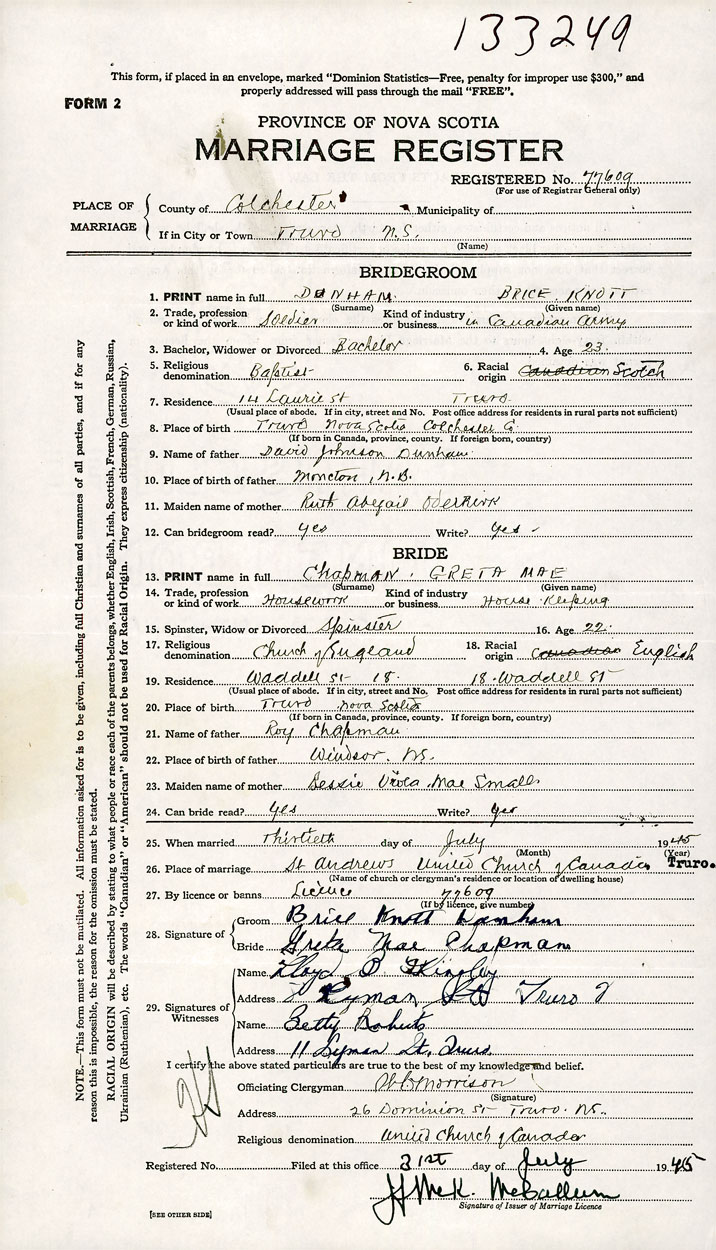 133249
This form, if placed in an envelope, marked "Dominion Statistics—Free, penalty for improper use $300," and
properly addressed will pass through the mail "FREE".
FORM 2
PROVINCE OF NOVA SCOTIA
MARRIAGE REGISTER
REGISTERED No. 77609
(For use of Registrar General only)
PLACE OF MARRIAGE
County of Colchester Municipality of
If in City or Town Truro N.S.
(Name)
BRIDEGROOM
1. PRINT name in full DUNHAM. BRICE KNOTT
(Surname) (Given name)
2. Trade, profession or kind of work Soldier Kind of industry or business in Canadian Army
3. Bachelor, Widower or Divorced Bachelor 4. Age 23.
5. Religious denomination Baptist 6. Racial origin Canadian Scotch
7. Residence 14 Laurie St Truro.
(Usual place of abode. If in city, street and No. Post office address for residents in rural parts not sufficient)
8. Place of birth Truro Nova Scotia Colchester Co.
(If born in Canada, province, county. If foreign born, country)
9. Name of father David Johnson Dunham
10. Place of birth of father Moncton, N.B.
11. Maiden name of mother Ruth Abegail Oderkirk
12. Can bridegroom read? yes Write? yes -
BRIDE
13. PRINT name in full Chapman. GRETA MAE
(Surname) (Given name)
14. Trade, profession or kind of work Housework Kind of industry or business House Keeping
15. Spinster, Widow or Divorced Spinster 16. Age 22.
17. Religious denomination Church of England 18. Racial origin Canadian English
19. Residence Waddell St 18. 18. Waddell St
(Usual place of abode. If in city, street and No. Post office address for residents in rural parts not sufficient)
20. Place of birth Truro Nova Scotia
(If born in Canada, province, county. If foreign born, country)
21. Name of father Roy Chapman
22. Place of birth of father Windsor. NS.
23. Maiden name of mother Bessie Viola Mae Small
24. Can bride read? yes Write? yes
25. When married Thirtieth day of July 1945
(Month) (Year)
26. Place of marriage St Andrews United Church of Canada Truro.
(Name of church or clergyman's residence or location of dwelling house)
27. By licence or banns Licence 77609
(If by licence, give number)
28. Signature of
Groom Brice Knott Dunham
Bride Greta Mae Chapman
29. Signatures of Witnesses
Name Lloyd
Address Lyman St Truro
Name Betty Roberts
Address 11 Lyman St. Truro.
I certify the above stated particulars are true to the best of my knowledge and belief.
Officiating Clergyman Morrison
(Signature)
Address 26 Dominion St Truro. NS.
Religious denomination United Church of Canada
Registered No. Filed at this office 31st day of July 1945
J H McK. McCallum
Signature of Issuer of Marriage Licence
[SEE OTHER SIDE]
NOTE.—This form must not be mutilated. All information asked for is to be given, including full Christian and surnames of all parties, and if for any
reason this is impossible, the reason for the omission must be stated.
RACIAL ORIGIN will be described by stating to what people or race each of the parents belongs, whether English, Irish, Scottish, French, German, Russian,
Ukrainian (Ruthenian), etc. The words "Canadian" or "American" should not be used for Racial Origin. They express citizenship (nationality).